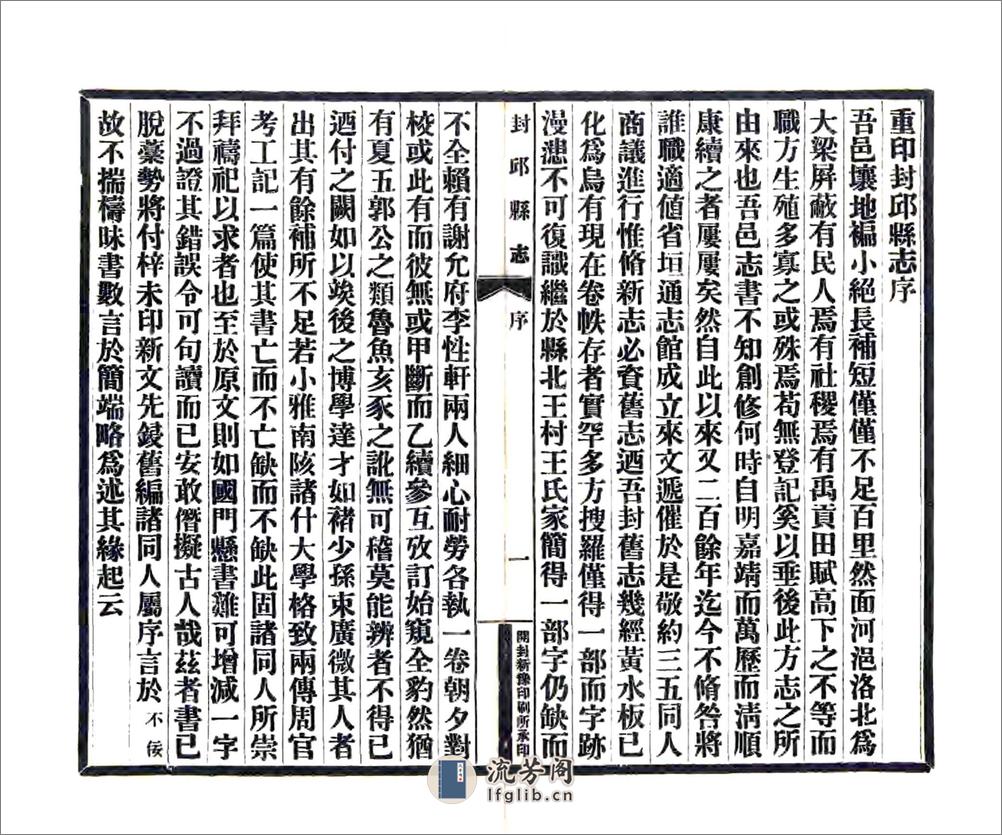 重印封邱縣志序
吾邑壤地褊小絕長補短僅僅不足百里然面河浥洛北爲
大梁屏蔽有民人焉有社稷焉有禹貢田賦高下之不等而
職方生殖多寡之或殊焉苟無登記奚以垂後此方志之所
由來也吾邑志書不知創修何時自明嘉靖而萬歷而淸順
康續之者屢屢矣然自此以來又二百餘年迄今不脩咎將
誰職適値省垣通志館成立來文遞催於是敬約三五同人
商議進行惟脩新志必資舊志迺吾封舊志幾經黃水板已
化爲烏有現在卷帙存者實罕多方搜羅僅得一部而字跡
漫漶不可復識繼於縣北王村王氏家簡得一部字仍缺而
封邱縣志 序 一 開封新豫印刷所承印
不全賴有謝允府李性軒兩人細心耐勞各執一卷朝夕對
校或此有而彼無或甲斷而乙續參互攷訂始窺全豹然猶
有夏五郭公之類魯魚亥豕之訛無可稽莫能辨者不得已
迺付之闕如以竢後之博學達才如褚少孫束廣微其人者
出其有餘補所不足若小雅南陔諸什大學格致兩傳周官
考工記一篇使其書亡而不亡缺而不缺此固諸同人所崇
拜禱祀以求者也至於原文則如國門懸書難可增減一字
不過證其錯誤令可句讀而已安敢僭擬古人哉茲者書已
脫藁勢將付梓未印新文先鋟舊編諸同人屬序言於不佞
故不揣檮昧書數言於簡端略爲述其緣起云
流芳阁
lfglib.cn